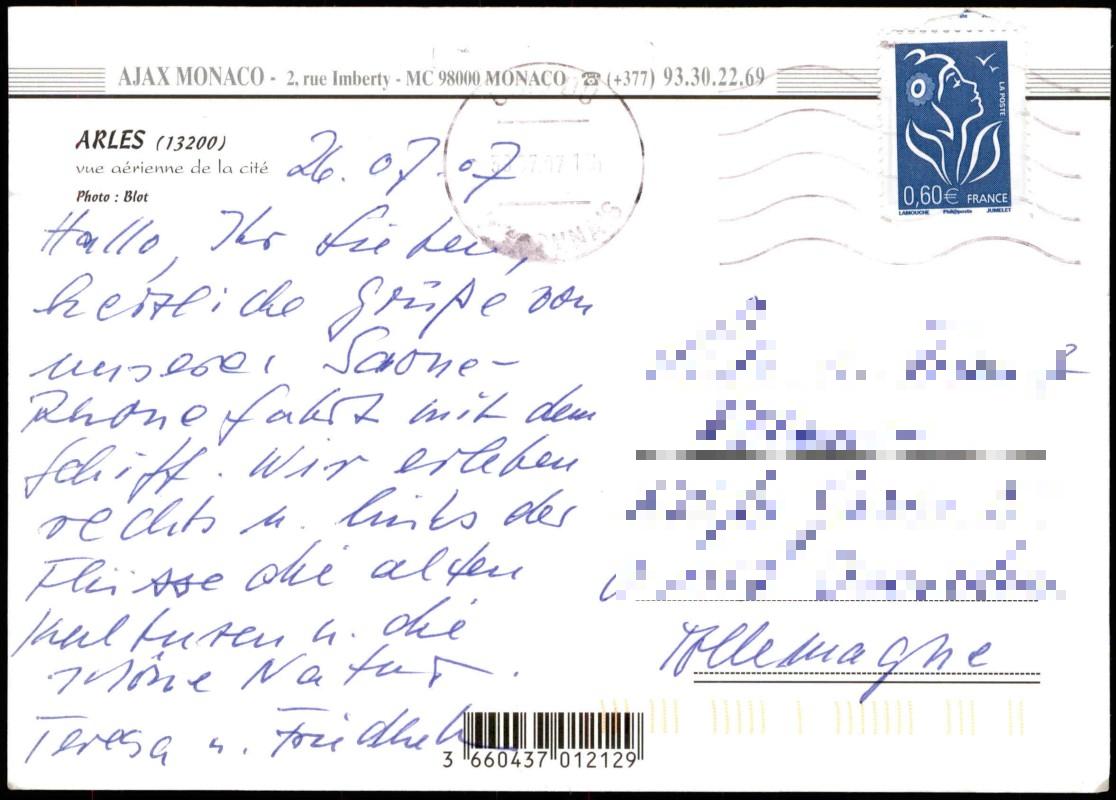 AJAX MONACO - 2, rue Imberty - MC 98000 MONACO ☎ (+377) 93.30.22.69
ARLES (13200)
vue aérienne de la cité
Photo : Blot
26.07.07
Hallo, Ihr Lieben,
herzliche Grüße von
unserer Saone-
Rhone fahrt mit dem
Schiff. Wir erleben
rechts u. links der
Flüsse die alten
Kulturen u. die
schöne Natur.
Teresa u.
LA POSTE
0,60€ FRANCE
LAMOUCHE Phil@poste JUMELET
Allemagne
3 660437 012129